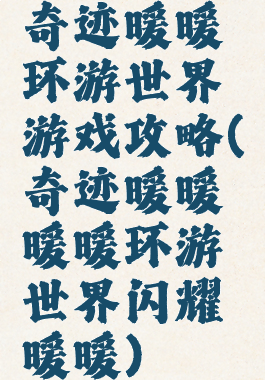 奇迹暖暖
环游世界
游戏攻略(
奇迹暖暖
暖暖环游
世界闪耀
暖暖)